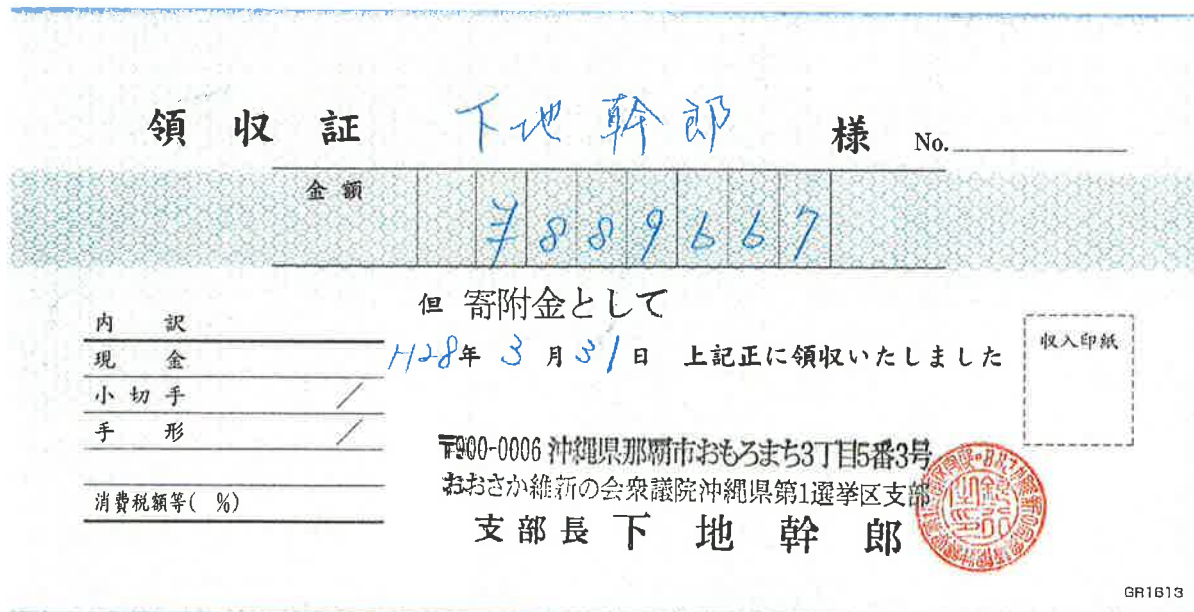 領収証 下地幹郎 様 No.
金額 ¥889667
但 寄附金として
H28年 3月31日 上記正に領収いたしました
収入印紙
内訳
現金
小切手 /
手形 /
消費税額等( %)
〒900-0006 沖縄県那覇市おもろまち3丁目5番3号
おおさか維新の会衆議院沖縄県第1選挙区支部
支部長 下地幹郎
GR1613